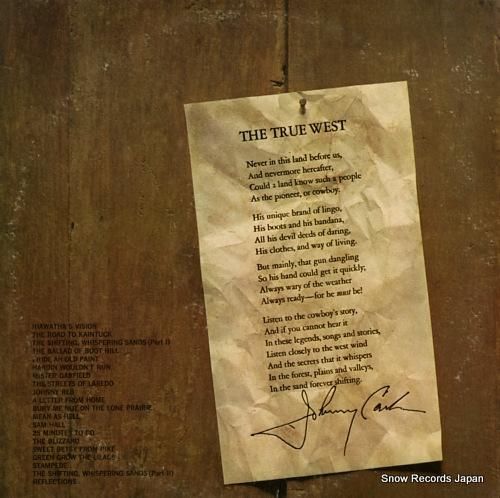 THE TRUE WEST
Never in this land before us,
And nevermore hereafter,
Could a land know such a people
As the pioneer, or cowboy.
His unique brand of lingo,
His boots and his bandana,
All his devil deeds of daring,
His clothes, and way of living.
But mainly, that gun dangling
So his hand could get it quickly;
Always wary of the weather
Always ready—for he must be!
Listen to the cowboy's story,
And if you cannot hear it
In these legends, songs and stories,
Listen closely to the west wind
And the secrets that it whispers
In the forest, plains and valleys,
In the sand forever shifting.
Johnny Cash
HIAWATHA'S VISION
THE ROAD TO KAINTUCK
THE SHIFTING, WHISPERING SANDS (Part I)
THE BALLAD OF BOOT HILL
I RIDE AN OLD PAINT
HARDIN WOULDN'T RUN
MISTER GARFIELD
THE STREETS OF LAREDO
JOHNNY REB
A LETTER FROM HOME
BURY ME NOT ON THE LONE PRAIRIE
MEAN AS HELL
SAM HALL
25 MINUTES TO GO
THE BLIZZARD
SWEET BETSY FROM PIKE
GREEN GROW THE LILACS
STAMPEDE
THE SHIFTING, WHISPERING SANDS (Part II)
REFLECTIONS
Snow Records Japan